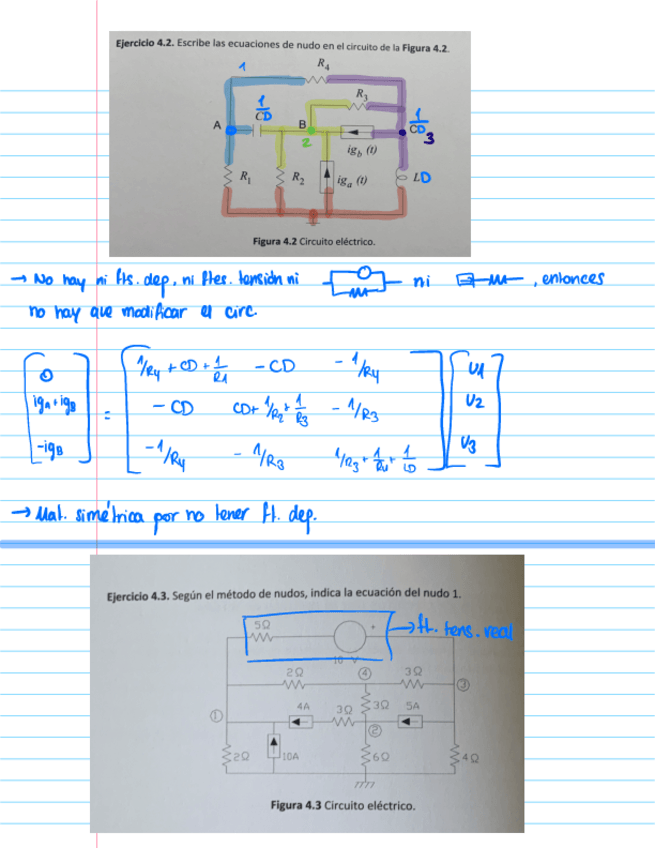 Ejercicio 4.2. Escribe las ecuaciones de nudo en el circuito de la Figura 4.2.
1
R4
R3
1/CD
A
B
2
1/CD
3
igb (t)
R1
R2
iga (t)
LD
Figura 4.2 Circuito eléctrico.
→ No hay ni fts. dep, ni ftes. tensión ni
ni
, entonces
no hay que modificar el circ.
0
1/R4 + CD + 1/R1
- CD
- 1/R4
U1
igA+igB
=
- CD
CD+ 1/R2 + 1/R3
- 1/R3
U2
-igB
-1/R4
- 1/R3
1/R3 + 1/R4 + 1/LD
U3
→ Mat. simétrica por no tener ft. dep.
Ejercicio 4.3. Según el método de nudos, indica la ecuación del nudo 1.
5Ω
+
→ ft. tens. real
10 V
2Ω
4
3Ω
3
4A
3Ω
3Ω
5A
1
2
2Ω
10A
6Ω
4Ω
Figura 4.3 Circuito eléctrico.